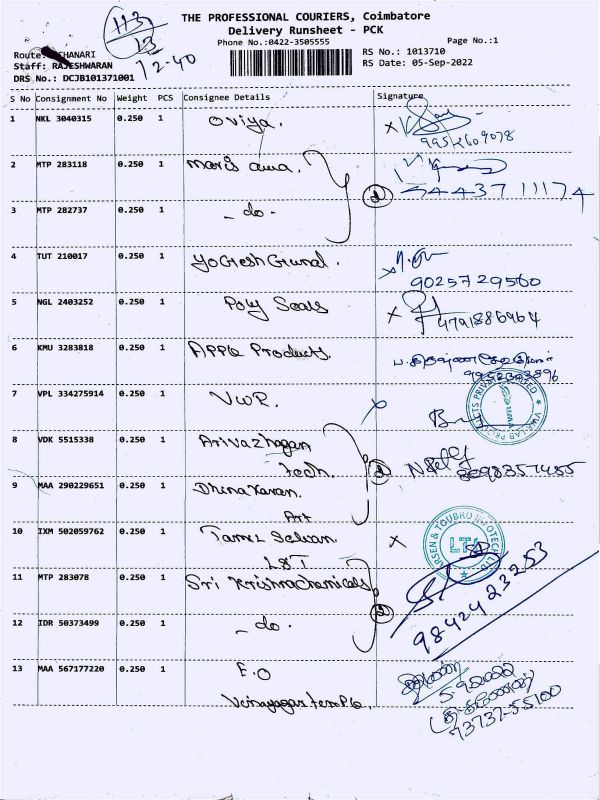 113
13
12.40
THE PROFESSIONAL COURIERS, Coimbatore
Delivery Runsheet - PCK
Phone No.:0422-3505555
Page No.:1
Staff: RAJESHWARAN
DRS No.: DCJB101371001
RS No.: 1013710
RS Date: 05-Sep-2022
S No Consignment No Weight PCS Consignee Details Signature
1 NKL 3040315 0.250 1 Oviya.
2 MTP 283118 0.250 1
3 MTP 282737 0.250 1 - do -
4 TUT 210017 0.250 1
9025729560
5 NGL 2403252 0.250 1 Poly Seals
6 KMU 3283818 0.250 1 Apple Products.
7 VPL 334275914 0.250 1 VWR.
8 VDK 5515338 0.250 1 Arivazhagan
Tech.
9 MAA 290229651 0.250 1 Dhenakaran.
Art
10 IXM 502059762 0.250 1 Tamil Selvan.
L&T
LARSEN & TOUBRO INFOTECH LTD
11 MTP 283078 0.250 1 Sri Krishna Chemicals
9842423253
12 IDR 50373499 0.250 1 - do -
13 MAA 567177220 0.250 1 E.O
Vinayagar temple.
73737-55100